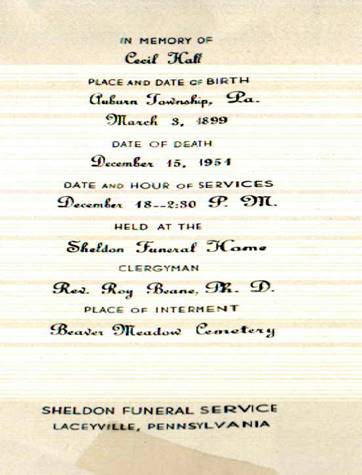 IN MEMORY OF
Cecil Hall
PLACE AND DATE OF BIRTH
Auburn Township, Pa.
March 3, 1899
DATE OF DEATH
December 15, 1951
DATE AND HOUR OF SERVICES
December 18--2:30 P. M.
HELD AT THE
Sheldon Funeral Home
CLERGYMAN
Rev. Roy Beane, Ph. D.
PLACE OF INTERMENT
Beaver Meadow Cemetery
SHELDON FUNERAL SERVICE
LACEYVILLE, PENNSYLVANIA